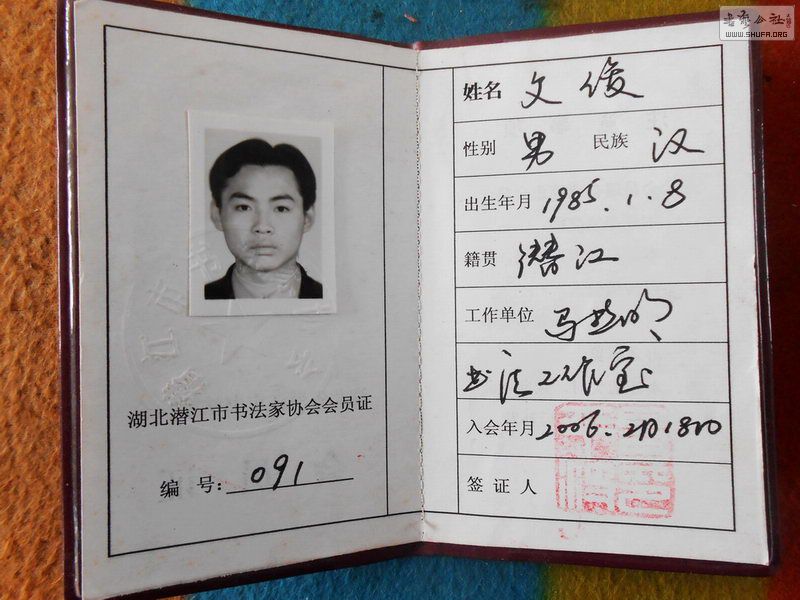 書法公社
WWW.SHUFA.ORG
湖北潜江市书法家协会会员证
编 号: 091
姓名 文俊
性别 男 民族 汉
出生年月 1985.1.8
籍贯 潜江
工作单位
书法工作室
入会年月 2006.2月18日
签 证 人